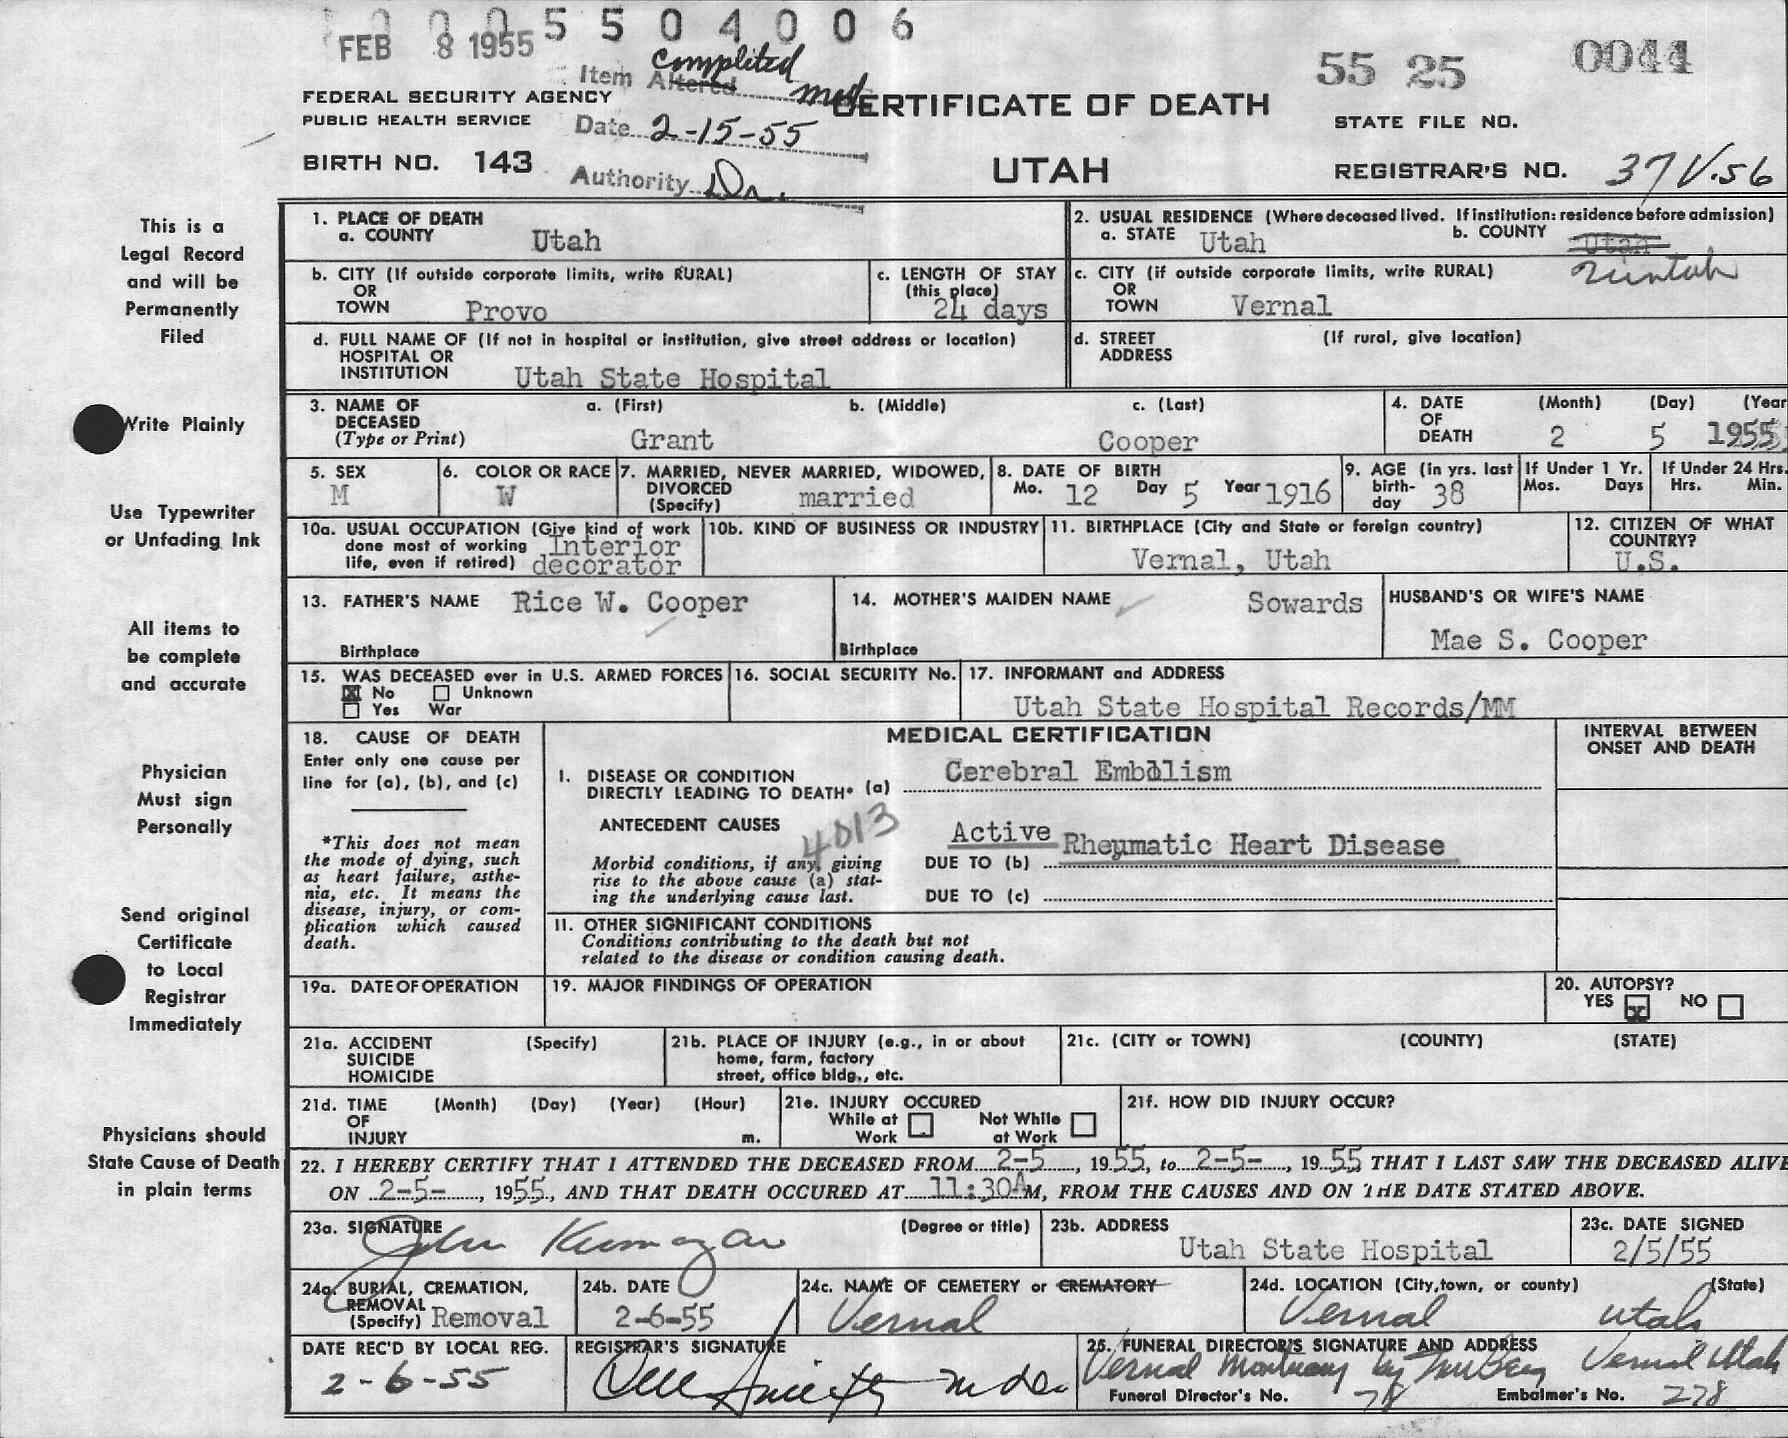 0 0 0 5 5 0 4 0 0 6
FEB 8 1955
Item Altered Complited
Med
55 25 0044
FEDERAL SECURITY AGENCY
PUBLIC HEALTH SERVICE
Date 2-15-55
CERTIFICATE OF DEATH
STATE FILE NO.
BIRTH NO. 143
Authority Dr.
UTAH
REGISTRAR'S NO. 37 V.56
This is a
Legal Record
and will be
Permanently
Filed
Write Plainly
Use Typewriter
or Unfading Ink
All items to
be complete
and accurate
Physician
Must sign
Personally
Send original
Certificate
to Local
Registrar
Immediately
Physicians should
State Cause of Death
in plain terms
1. PLACE OF DEATH
a. COUNTY Utah
2. USUAL RESIDENCE (Where deceased lived. If institution: residence before admission)
a. STATE Utah b. COUNTY Utah
Uintah
b. CITY (If outside corporate limits, write RURAL)
OR
TOWN Provo
c. LENGTH OF STAY
(this place)
24 days
c. CITY (if outside corporate limits, write RURAL)
OR
TOWN Vernal
d. FULL NAME OF (If not in hospital or institution, give street address or location)
HOSPITAL OR
INSTITUTION Utah State Hospital
d. STREET (If rural, give location)
ADDRESS
3. NAME OF a. (First) b. (Middle) c. (Last)
DECEASED
(Type or Print) Grant Cooper
4. DATE (Month) (Day) (Year
OF
DEATH 2 5 1955
5. SEX
M
6. COLOR OR RACE
W
7. MARRIED, NEVER MARRIED, WIDOWED,
DIVORCED
(Specify) married
8. DATE OF BIRTH
Mo. 12 Day 5 Year 1916
9. AGE (in yrs. last
birth-
day 38
If Under 1 Yr.
Mos. Days
If Under 24 Hrs.
Hrs. Min.
10a. USUAL OCCUPATION (Give kind of work
done most of working Interior
life, even if retired) decorator
10b. KIND OF BUSINESS OR INDUSTRY
11. BIRTHPLACE (City and State or foreign country)
Vernal, Utah
12. CITIZEN OF WHAT
COUNTRY?
U.S.
13. FATHER'S NAME Rice W. Cooper
Birthplace
14. MOTHER'S MAIDEN NAME Sowards
Birthplace
HUSBAND'S OR WIFE'S NAME
Mae S. Cooper
15. WAS DECEASED ever in U.S. ARMED FORCES
No Unknown
Yes War
16. SOCIAL SECURITY No.
17. INFORMANT and ADDRESS
Utah State Hospital Records/MM
18. CAUSE OF DEATH
Enter only one cause per
line for (a), (b), and (c)
*This does not mean
the mode of dying, such
as heart failure, asthe-
nia, etc. It means the
disease, injury, or com-
plication which caused
death.
MEDICAL CERTIFICATION
INTERVAL BETWEEN
ONSET AND DEATH
I. DISEASE OR CONDITION
DIRECTLY LEADING TO DEATH* (a) Cerebral Embolism
ANTECEDENT CAUSES 4013
Morbid conditions, if any, giving
rise to the above cause (a) stat-
ing the underlying cause last.
DUE TO (b) Active Rheumatic Heart Disease
DUE TO (c)
11. OTHER SIGNIFICANT CONDITIONS
Conditions contributing to the death but not
related to the disease or condition causing death.
19a. DATE OF OPERATION
19. MAJOR FINDINGS OF OPERATION
20. AUTOPSY?
YES X NO
21a. ACCIDENT (Specify)
SUICIDE
HOMICIDE
21b. PLACE OF INJURY (e.g., in or about
home, farm, factory
street, office bldg., etc.
21c. (CITY or TOWN) (COUNTY) (STATE)
21d. TIME (Month) (Day) (Year) (Hour)
OF
INJURY m.
21e. INJURY OCCURED
While at Not While
Work at Work
21f. HOW DID INJURY OCCUR?
22. I HEREBY CERTIFY THAT I ATTENDED THE DECEASED FROM 2-5, 1955, to 2-5-, 1955 THAT I LAST SAW THE DECEASED ALIVE
ON 2-5-, 1955, AND THAT DEATH OCCURED AT 11:30AM, FROM THE CAUSES AND ON THE DATE STATED ABOVE.
23a. SIGNATURE (Degree or title)
John
23b. ADDRESS
Utah State Hospital
23c. DATE SIGNED
2/5/55
24a. BURIAL, CREMATION,
REMOVAL
(Specify) Removal
24b. DATE
2-6-55
24c. NAME OF CEMETERY or CREMATORY
Vernal
24d. LOCATION (City, town, or county) (State)
Vernal Utah
DATE REC'D BY LOCAL REG.
2-6-55
REGISTRAR'S SIGNATURE
25. FUNERAL DIRECTOR'S SIGNATURE AND ADDRESS
Vernal Mortuary by Vernal Utah
Funeral Director's No. 78 Embalmer's No. 278